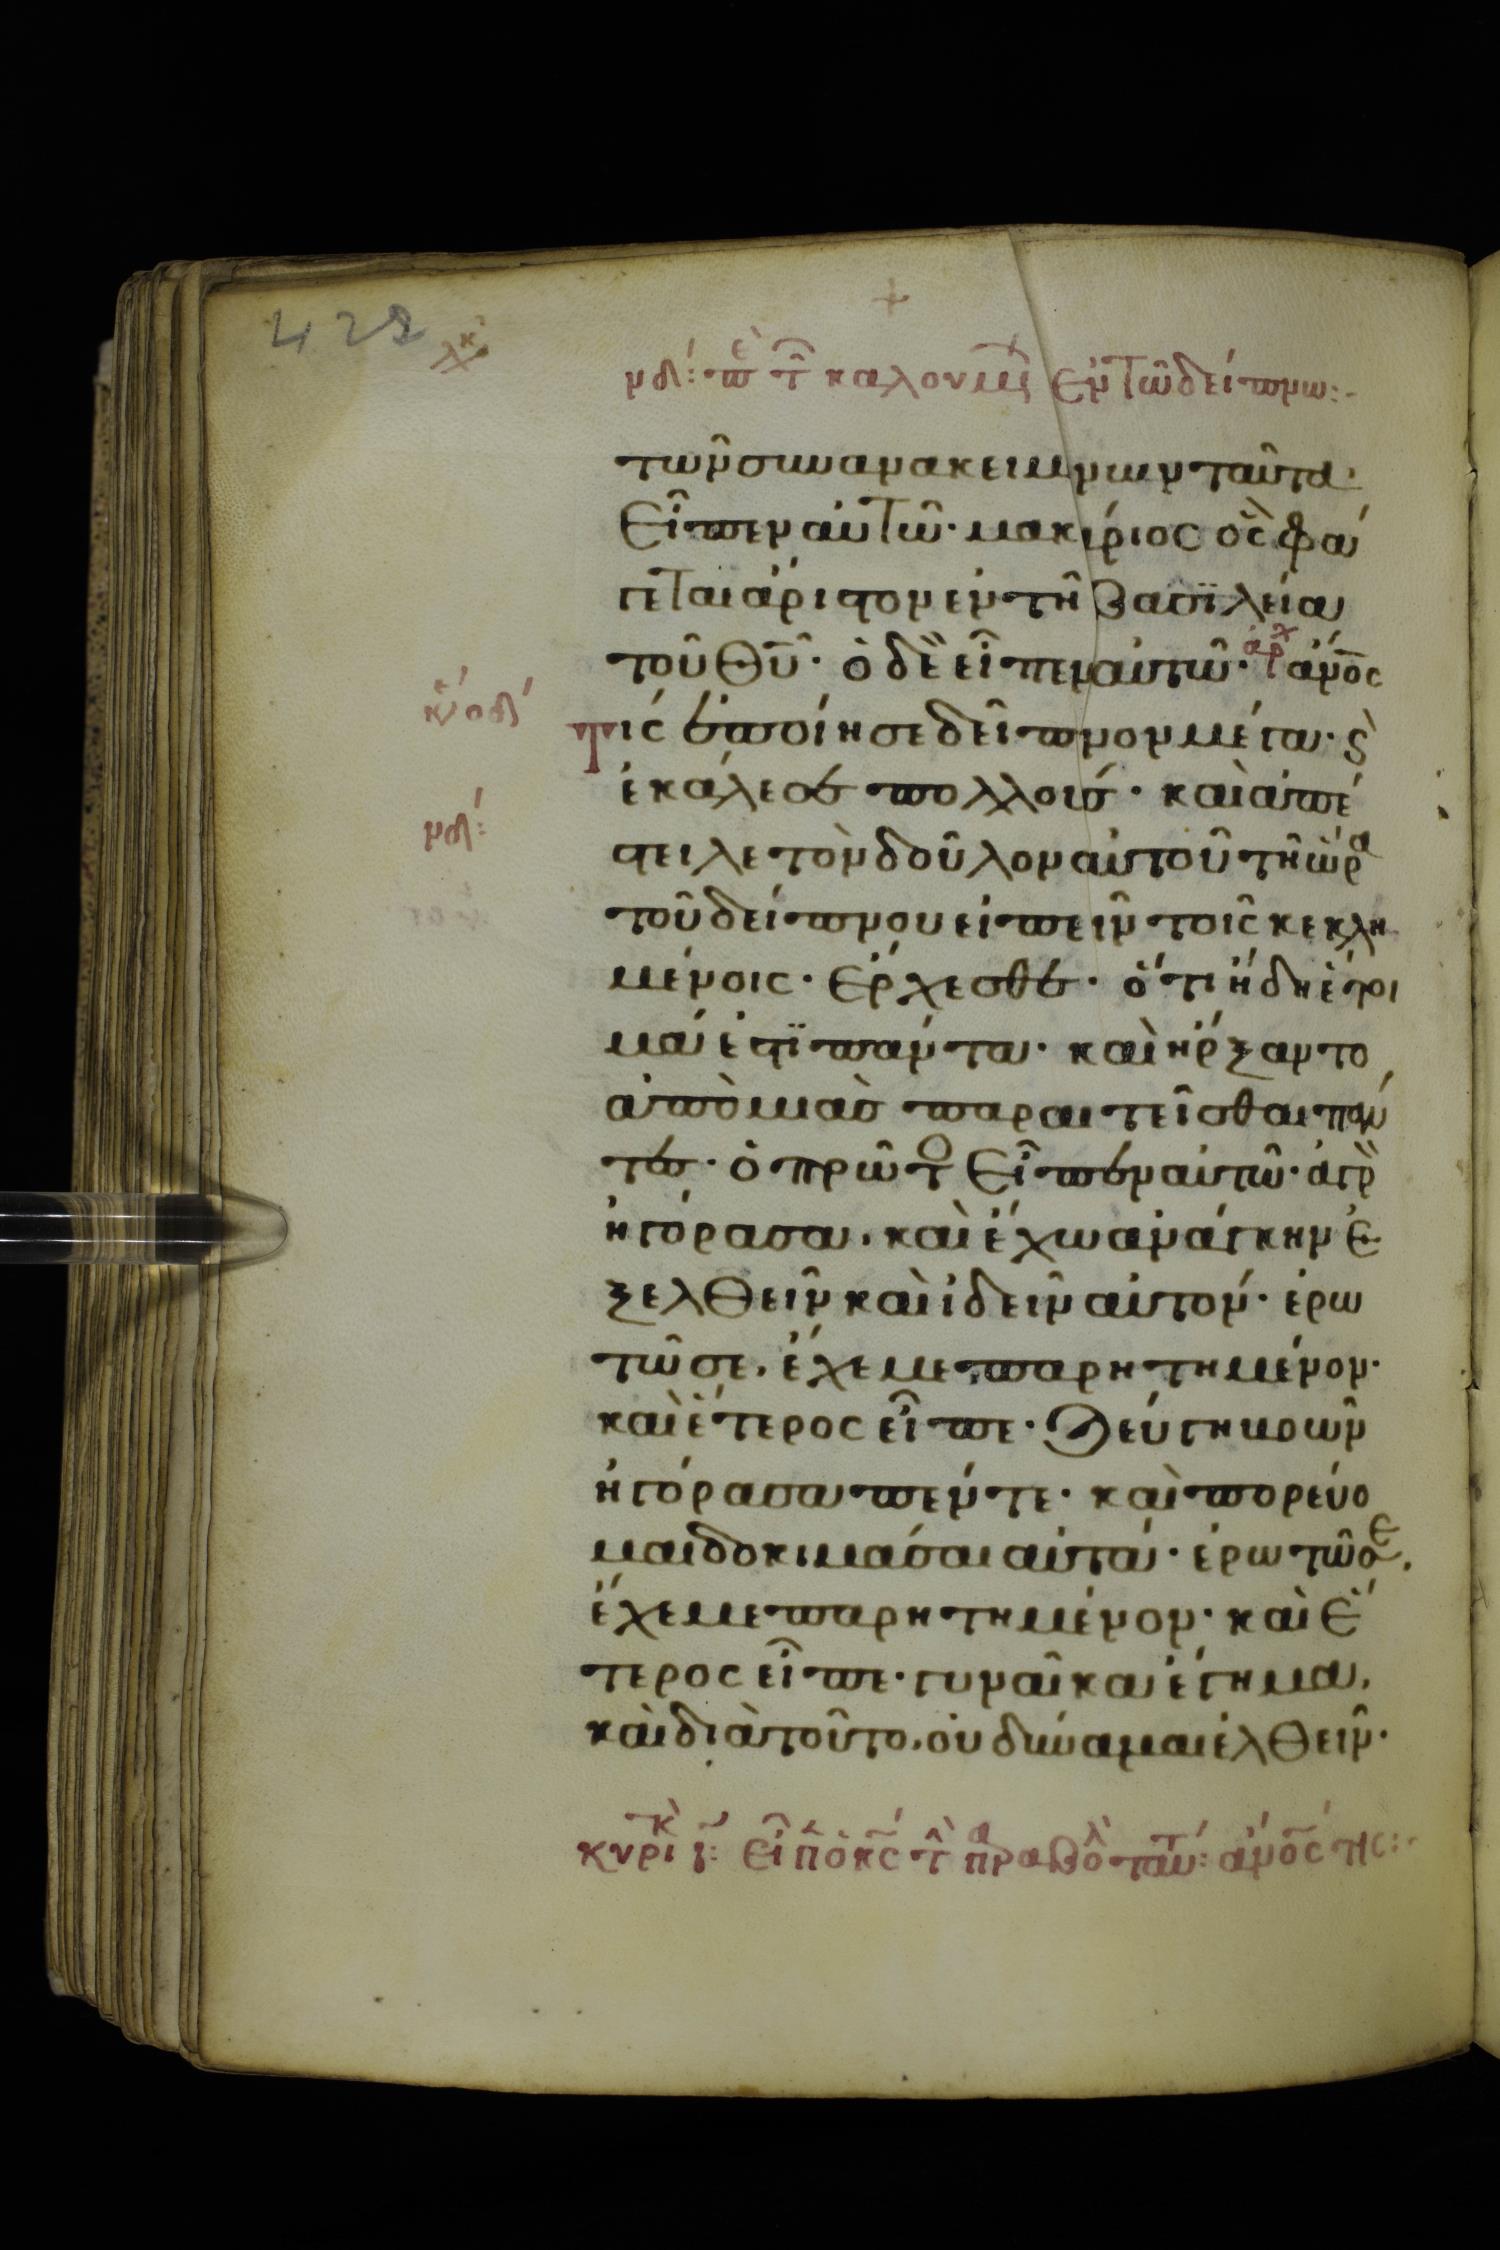 νδ: π τ καλουμ ἐν τῶ δείπνω:
τῶν συνανακειμένων ταῦτα·
εἶπεν αὐτῶ· μακάριος ὃς φά
γεται ἄριστον ἐν τῆ βασϊλεία
τοῦ θῦ· ὁ δὲ εἶπεν αὐτῶ· ἀρχ ἄνος
τίς ἐποίησε δεῖπνον μέγα· ϗ
ἐκάλεσε πολλούς· καὶ ἀπέ
στειλε τὸν δοῦλον αὐτοῦ τῆ ὥρα
τοῦ δείπνου εἰπεῖν τοῖς κεκλη
μένοις· ἔρχεσθε· ὅτι ἤδη ἕτοι
μά ἐστϊ πάντα· καὶ ἤρξαντο
ἀπὸ μιᾶς παραιτεῖσθαι πάν
τες· ὁ πρῶτο εἶπεν αὐτῶ· ἀγρὸ
ἠγόρασα, καὶ ἔχω ἀνάγκην ἐ
ξελθεῖν καὶ ἰδεῖν αὐτόν· ἐρω
τῶ σε, ἔχε με παρητημένον·
καὶ ἕτερος εἶπε· ζεύγη βοῶν
ἠγόρασα πέντε· καὶ πορεύο
μαι δοκιμάσαι αὐτά· ἐρωτῶ σε,
ἔχε με παρητημένον· καὶ ἕ
τερος εἶπε· γυναῖκα ἔγημα,
καὶ διὰ τοῦτο, οὐ δύναμαι ἐλθεῖν·
κυρι κ ι: εἶπ ὁ κς τ πραβολ ταύτ: ἄνος τις: